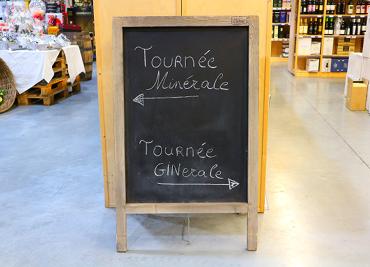 Tournée
Minérale
Tournée
GINerale